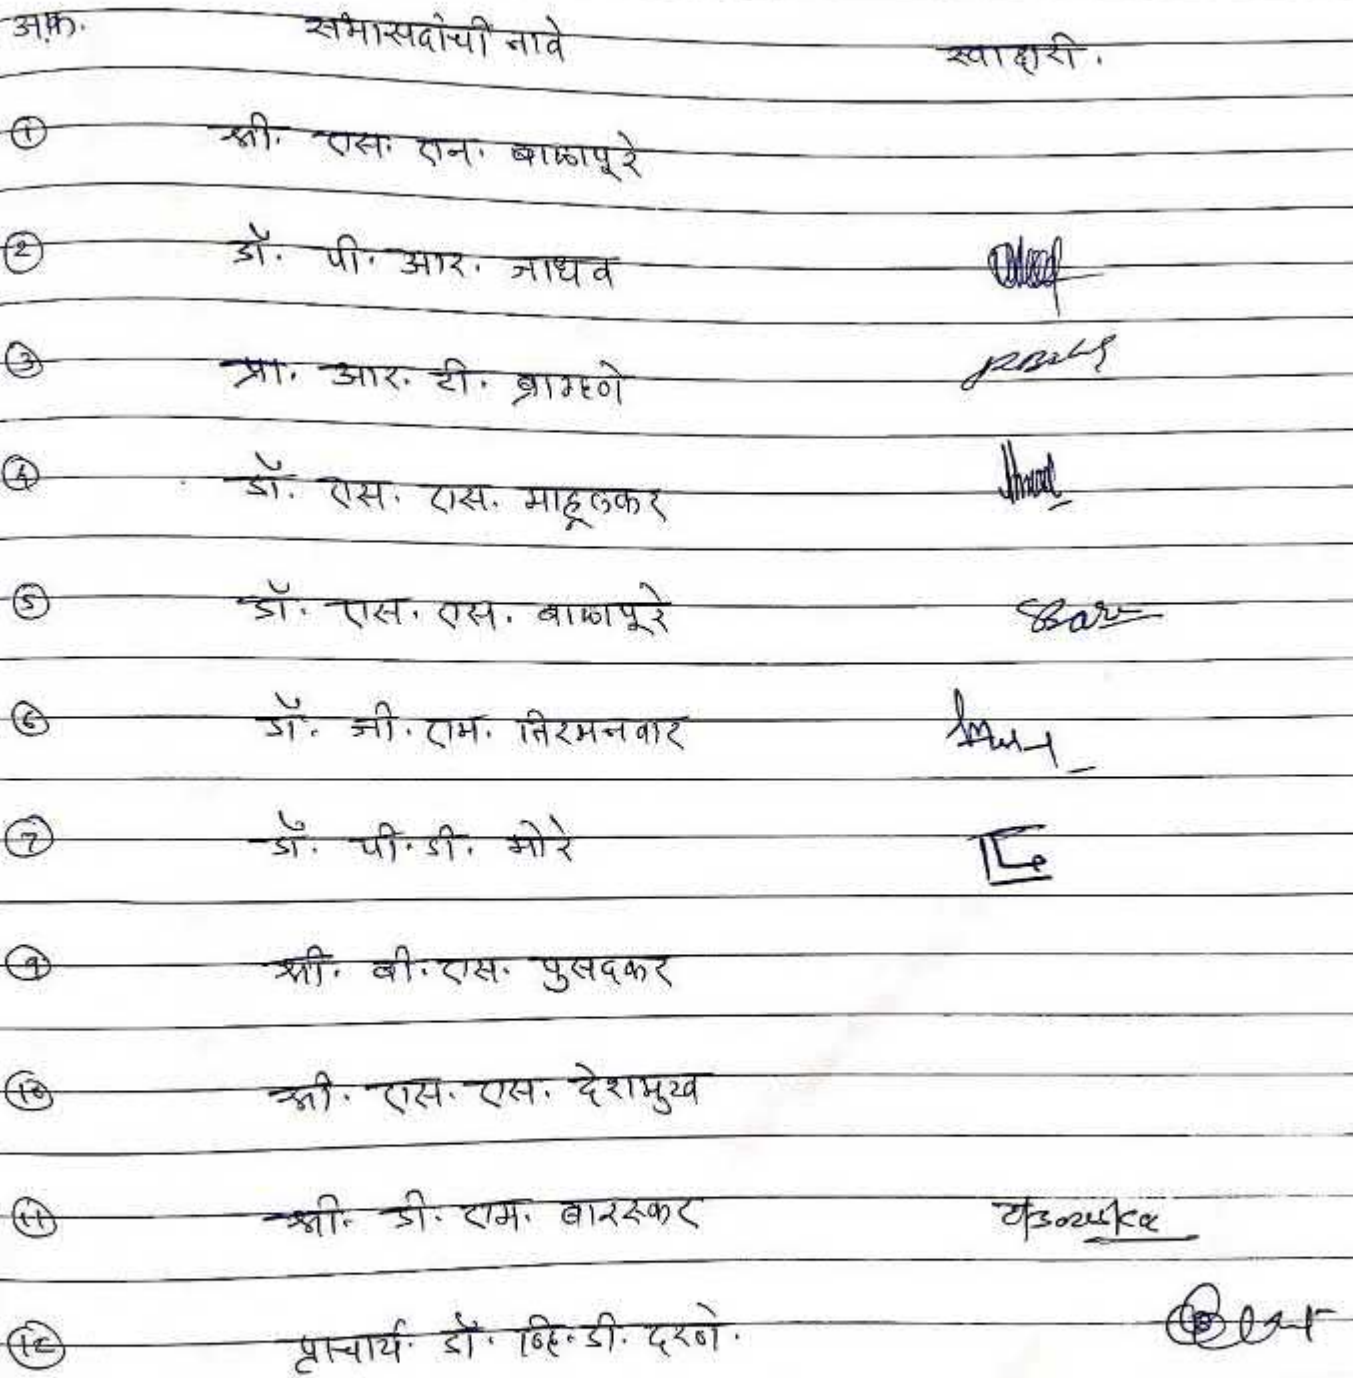 अ.क्र. सभासदांची नावे स्वाक्षरी.
① श्री. एस. एन. बाळापूरे
② डॉ. पी. आर. जाधव
③ प्रा. आर. टी. ब्राम्हणे
④ डॉ. एस. एस. माहूलकर
⑤ डॉ. एस. एस. बाळापूरे
⑥ डॉ. जी. एम. तिरमनवार
⑦ डॉ. पी. डी. मोरे
⑨ श्री. बी. एस. पुसदकर
⑩ श्री. एस. एस. देशमुख
⑪ श्री. डी. एम. बारस्कर
⑫ प्राचार्य डॉ. व्हि. डी. दरणे.